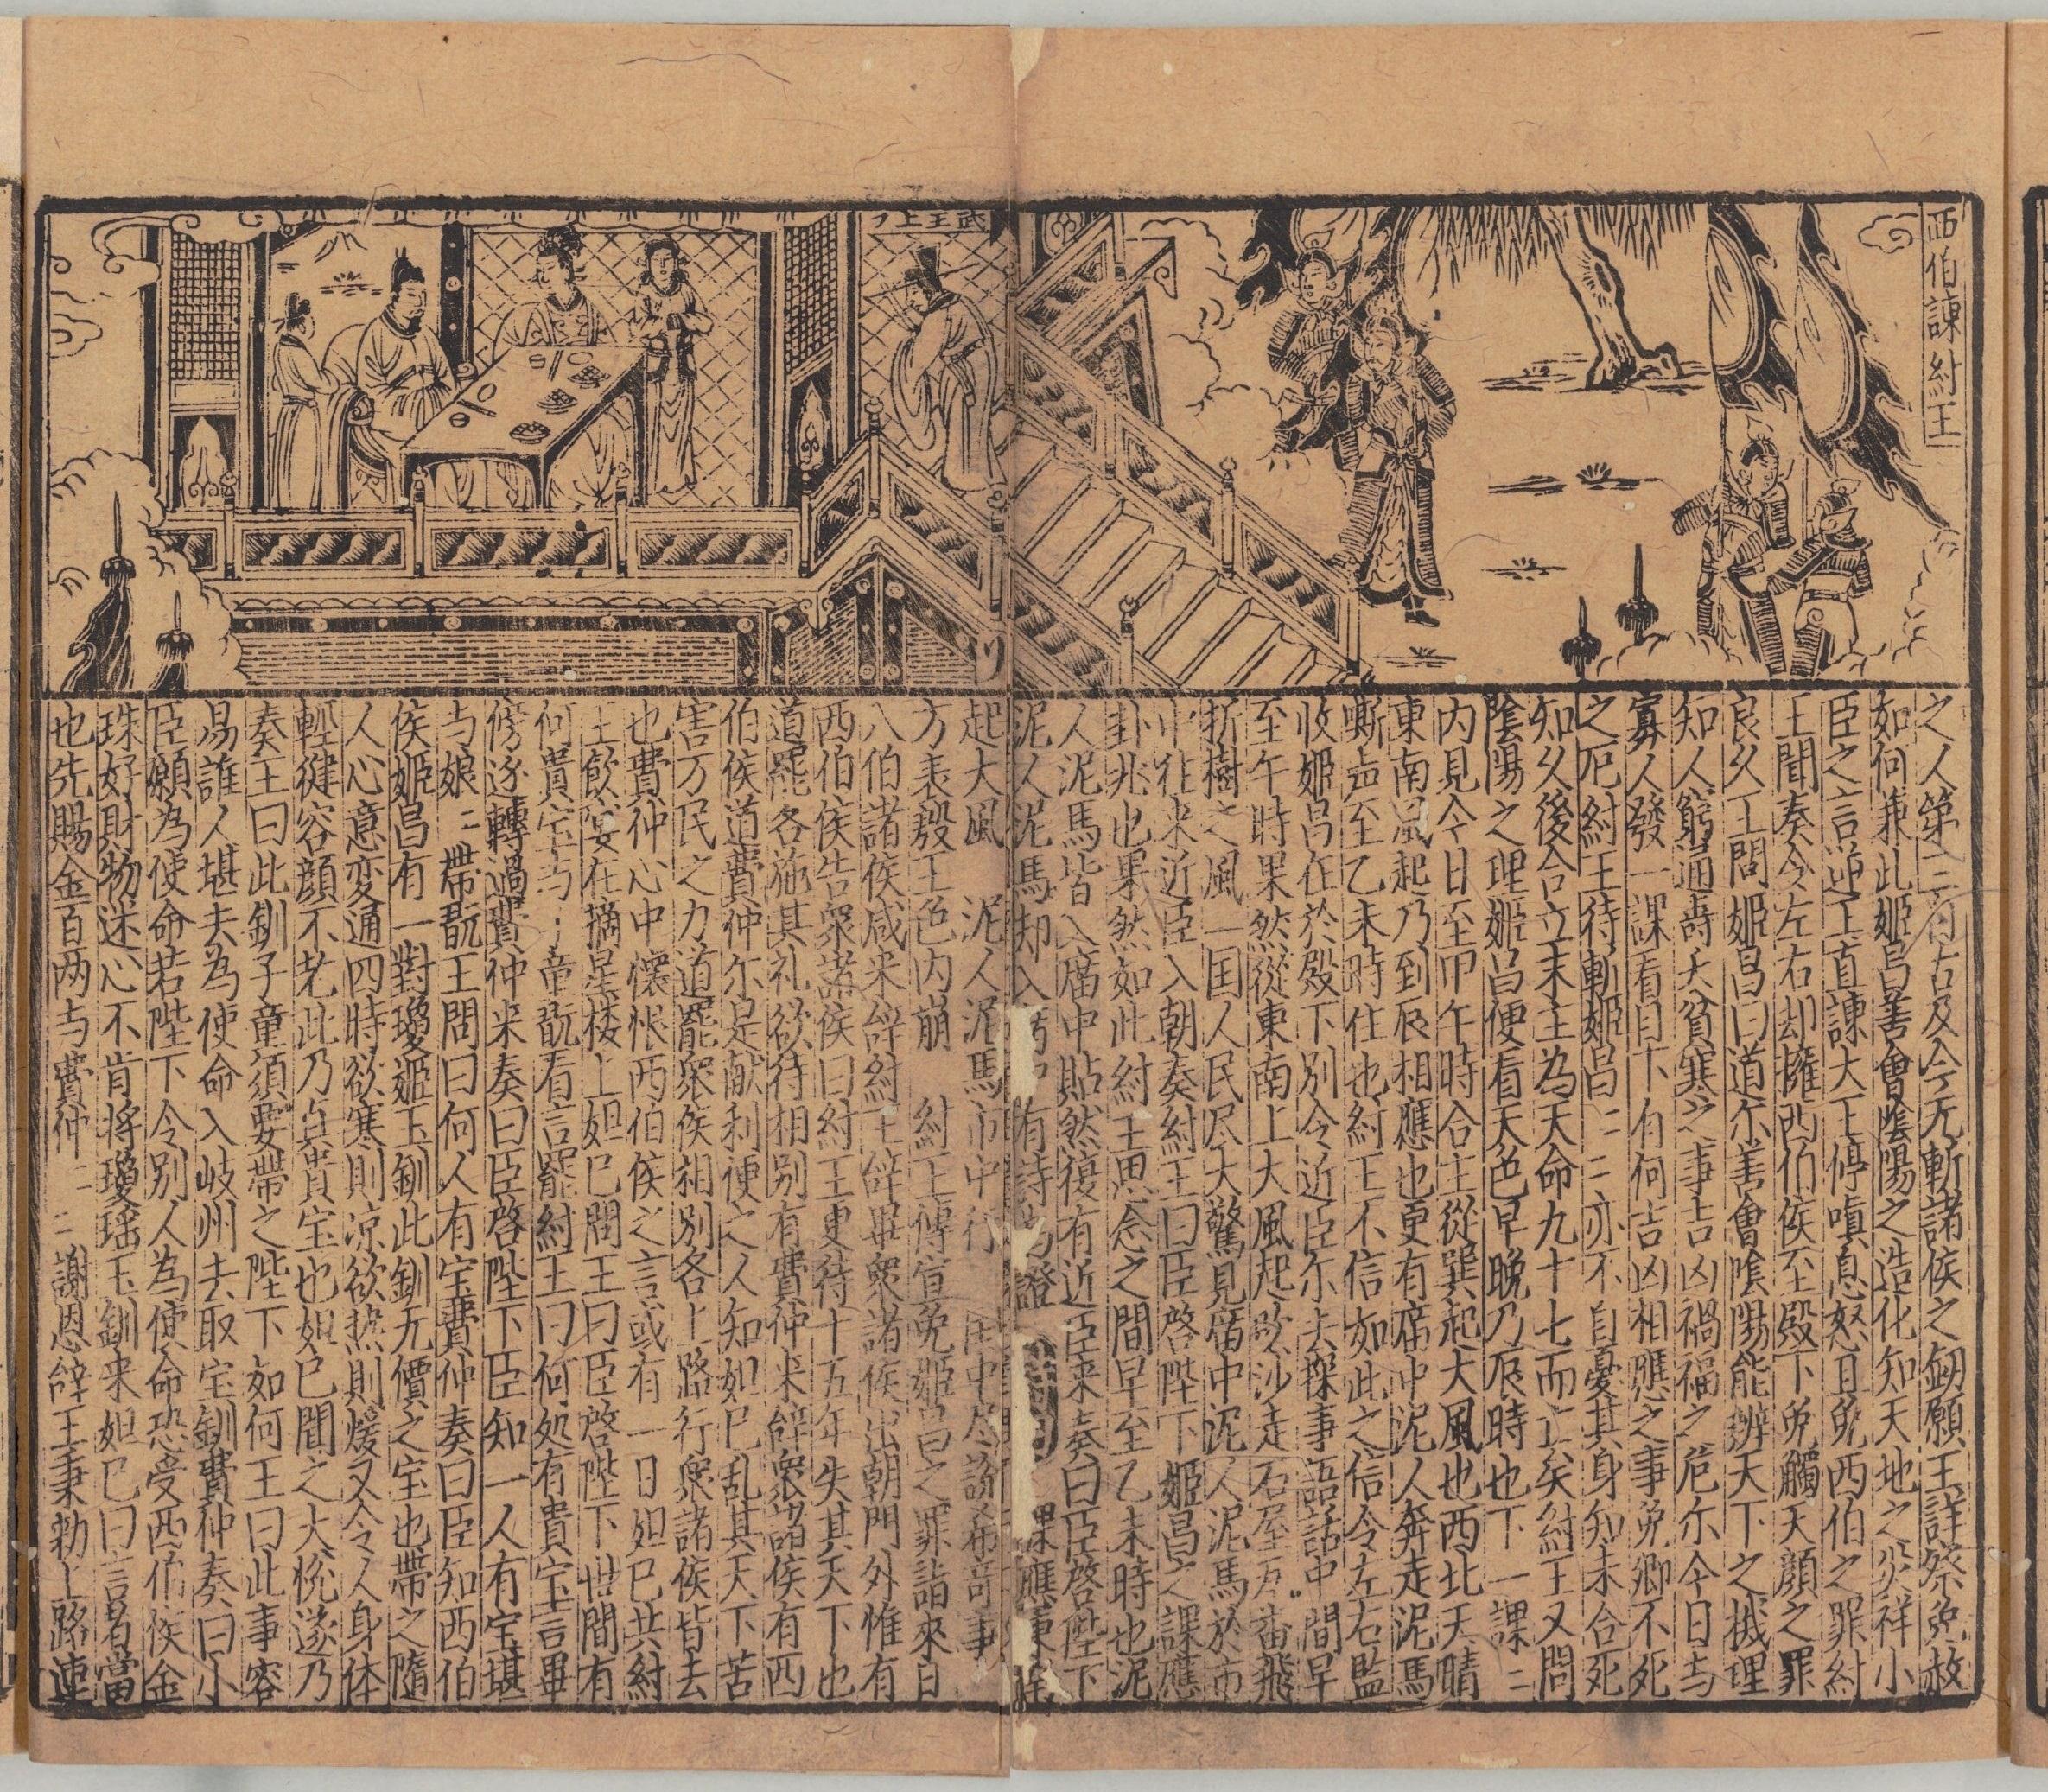 西伯諫紂王
武王上
之人第二自古及今无斬諸侯之劒願王詳察免赦
如何兼此姬昌善會陰陽之造化知天地之災祥小
臣之言逆王直諫大王停嗔息怒且免西伯之罪紂
王聞奏令左右却擁西伯侯至殿下免觸天顔之罪
良久王問姬昌曰道尓善會陰陽能辨天下之機理
知人窮通壽夭貧寒之事吉凶禍福之危尓今日与
寡人發一課看目下有何吉凶相應之事免卿不死
之厄紂王待斬姬昌二二亦不自憂其身知未合死
知久後合立末主為天命九十七而亡矣紂王又問
陰陽之理姬昌便看天色早晚乃辰時也下一課二
内見今日至甲午時合主從巽起大風也西北天晴
東南風起乃到辰相應也更有庿中泥人奔走泥馬
嘶声至乙未時住也紂王不信如此之信令左右監
收姬昌在於殿下別令近臣尓去探事語話中間早
至午時果然從東南上大風起吹沙走石屋瓦番飛
折樹之風一国人民尽大驚見庿中泥人泥馬於市
中往来近臣入朝奏紂王曰臣啓陛下姬昌之課應
卦兆也果然如此紂王思念之間早至乙未時也泥
人泥馬皆入庿中貼然復有近臣来奏曰臣啓陛下
泥人泥馬却入庿中有詩為證 課應東南
起大風 泥人泥馬市中行 国中尽說希奇事
方表殷王色内崩 紂王傳宣免姬昌之罪詣來日
八伯諸侯咸来辞紂王辞畢衆諸侯出朝門外惟有
西伯侯告衆諸侯曰紂王更待十五年失其天下也
道罷各施其礼欲待相別有費仲来辞衆諸侯有西
伯侯道費仲尓是献利便之人知妲己乱其天下苦
害万民之力道罷衆侯相別各上路行衆諸侯皆去
也費仲心中懷恨西伯侯之言或有一日妲己共紂
王飲宴在摘星楼上妲己問王曰臣啓陛下世間有
何貴宝与二童翫看言罷紂王曰何処有貴宝言畢
傍逐轉過費仲来奏曰臣啓陛下臣知一人有宝堪
与娘二帶翫王問曰何人有宝費仲奏曰臣知西伯
侯姬昌有一對瓊姬玉釧此釧无價之宝也帶之隨
人心意変通四時欲寒則凉欲热則煖又令人身体
輕徤容顔不老此乃真貴宝也妲己聞之大悅遂乃
奏王曰此釧子童須要帶之陛下如何王曰此事容
易誰人堪夫為使命入岐州去取宝釧費仲奏曰小
臣願為使命若陛下令別人為使命恐受西伯侯金
珠好財物迷心不肯將瓊瑶玉釧来妲己曰言者當
也先賜金百两与費仲二二謝恩辞王秉勑上路連